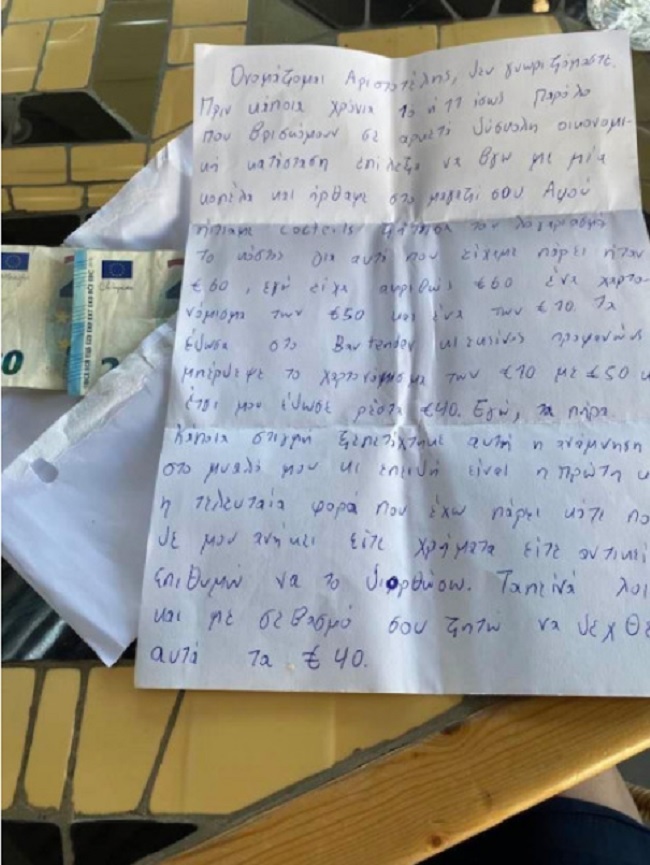 Ονομάζομαι Αριστοτέλης, δεν γνωριζόμαστε.
Πριν κάποια χρόνια 10 ή 11 ίσως παρόλο
που βρισκόμουν σε αρκετή δύσκολη οικονομι-
κή κατάσταση επίλεξα να βγω με μία
κοπέλα και ήρθαμε στο μαγαζί σου. Αφού
ήπιαμε cocteils ζήτησα τον λογαριασμό
Το κόστος για αυτά που είχαμε πάρει ήταν
€60, εγώ είχα ακριβώς €60 ένα χαρτο-
νόμισμα των €50 και ένα των €10. Τα
έδωσα στο Bartender κι εκείνος προφανώς
μπέρδεψε το χαρτονόμισμα των €10 με €50 κ
έτσι μου έδωσε ρέστα €40. Εγώ, τα πήρα.
Κάποια στιγμή ξεπετάχτηκε αυτή η ανάμνηση
στο μυαλό μου κι επειδή είναι η πρώτη κ
η τελευταία φορά που έχω πάρει κάτι πο
δε μου ανήκει είτε χρήματα είτε αντικεί
επιθυμώ να το διορθώσω. Ταπεινά λοι
και με σεβασμό σου ζητώ να δεχθε
αυτά τα €40.